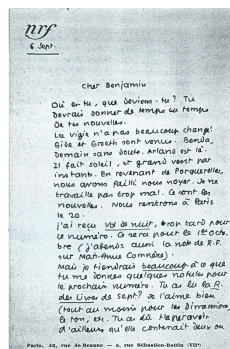 nrf
6 Sept.
Cher Benjamin
Où es-tu, que deviens-tu? Tu
devrais donner de temps en temps
de tes nouvelles.
La Vigie n'a pas beaucoup changé
Gide et Groeth sont venus. Benda,
demain sans doute. Arland est là.
Il fait soleil, et grand vent par
instants. En revenant de Porquerolles,
nous avons failli nous noyer. Je ne
travaille pas trop mal. Ce sont les
nouvelles. Nous rentrons à Paris
le 20.
J'ai reçu Vol de nuit, trop tard pour
ce numéro. Ce sera pour le 1er Octo-
bre (j'attends aussi la note de R.F.
sur Mat. Anne Comnène).
Mais je tiendrais beaucoup à ce que
tu me donnes quelques notules pour
le prochain numéro. Tu as lu la R.
des Livres de Sept? Je l'aime bien
(tout au moins pour les dimensions,
le ton, etc. Tu as dû t'apercevoir
d'ailleurs qu'elle contenait deux ou
Paris, 43, rue de Beaune — 5, rue Sébastien-Bottin (VIIe)